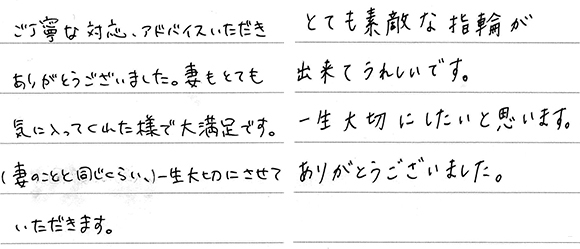 ご丁寧な対応、アドバイスいただき
ありがとうございました。妻もとても
気に入ってくれた様で大満足です。
(妻のことと同じくらい、)一生大切にさせて
いただきます。
とても素敵な指輪が
出来てうれしいです。
一生大切にしたいと思います。
ありがとうございました。